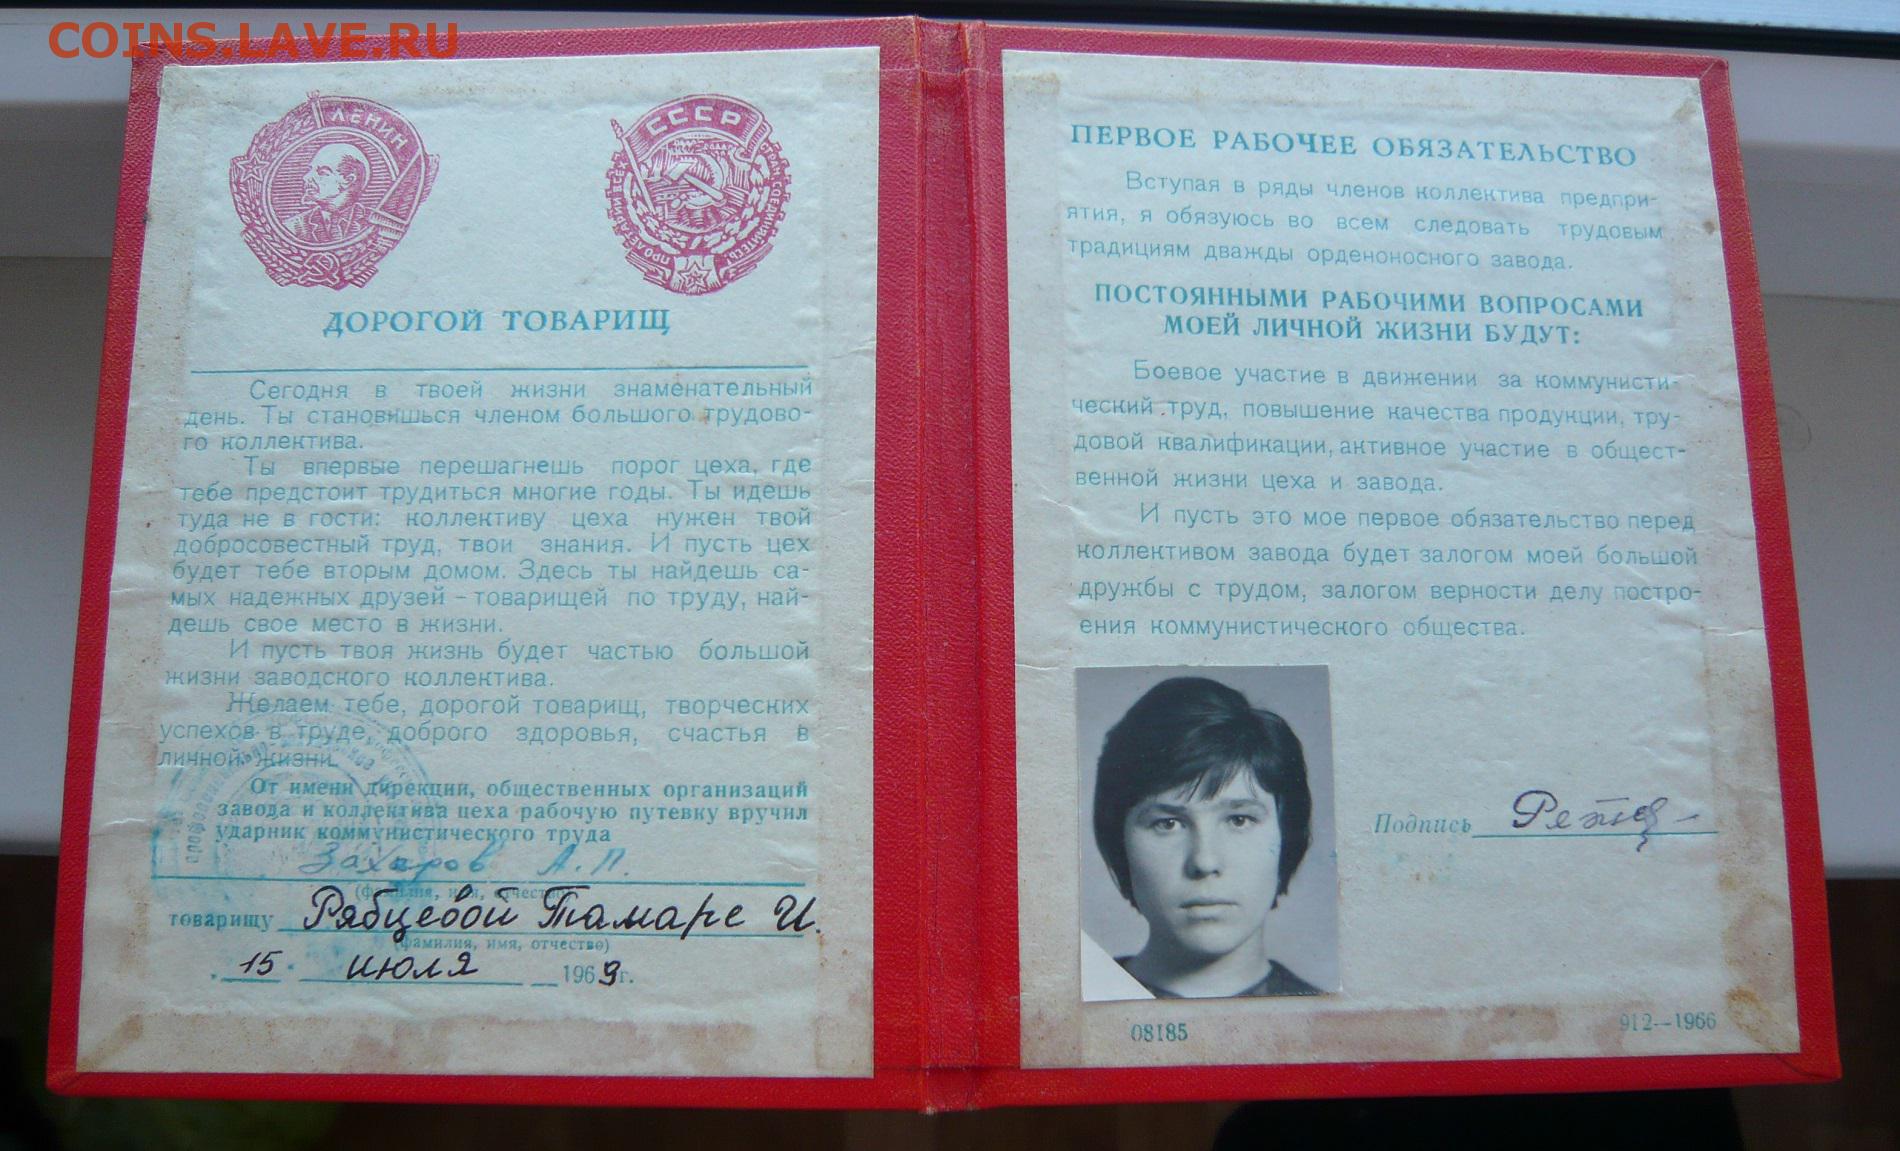 COINS.LAVE.RU
ЛЕНИН
СССР
ПРОЛЕТАРИИ ВСЕХ СТРАН СОЕДИНЯЙТЕСЬ!
ДОРОГОЙ ТОВАРИЩ
Сегодня в твоей жизни знаменательный
день. Ты становишься членом большого трудово-
го коллектива.
Ты впервые перешагнешь порог цеха, где
тебе предстоит трудиться многие годы. Ты идешь
туда не в гости: коллективу цеха нужен твой
добросовестный труд, твои знания. И пусть цех
будет тебе вторым домом. Здесь ты найдешь са-
мых надежных друзей - товарищей по труду, най-
дешь свое место в жизни.
И пусть твоя жизнь будет частью большой
жизни заводского коллектива.
Желаем тебе, дорогой товарищ, творческих
успехов в труде, доброго здоровья, счастья в
личной жизни.
От имени дирекции, общественных организаций
завода и коллектива цеха рабочую путевку вручил
ударник коммунистического труда
Захаров А.П.
(фамилия, имя, отчество)
товарищу Рябцевой Тамаре И.
(фамилия, имя, отчество)
15 июля 1969 г.
ПЕРВОЕ РАБОЧЕЕ ОБЯЗАТЕЛЬСТВО
Вступая в ряды членов коллектива предпри-
ятия, я обязуюсь во всем следовать трудовым
традициям дважды орденоносного завода.
ПОСТОЯННЫМИ РАБОЧИМИ ВОПРОСАМИ
МОЕЙ ЛИЧНОЙ ЖИЗНИ БУДУТ:
Боевое участие в движении за коммунисти-
ческий труд, повышение качества продукции, тру-
довой квалификации, активное участие в общест-
венной жизни цеха и завода.
И пусть это мое первое обязательство перед
коллективом завода будет залогом моей большой
дружбы с трудом, залогом верности делу постро-
ения коммунистического общества.
Подпись
08185
912--1966